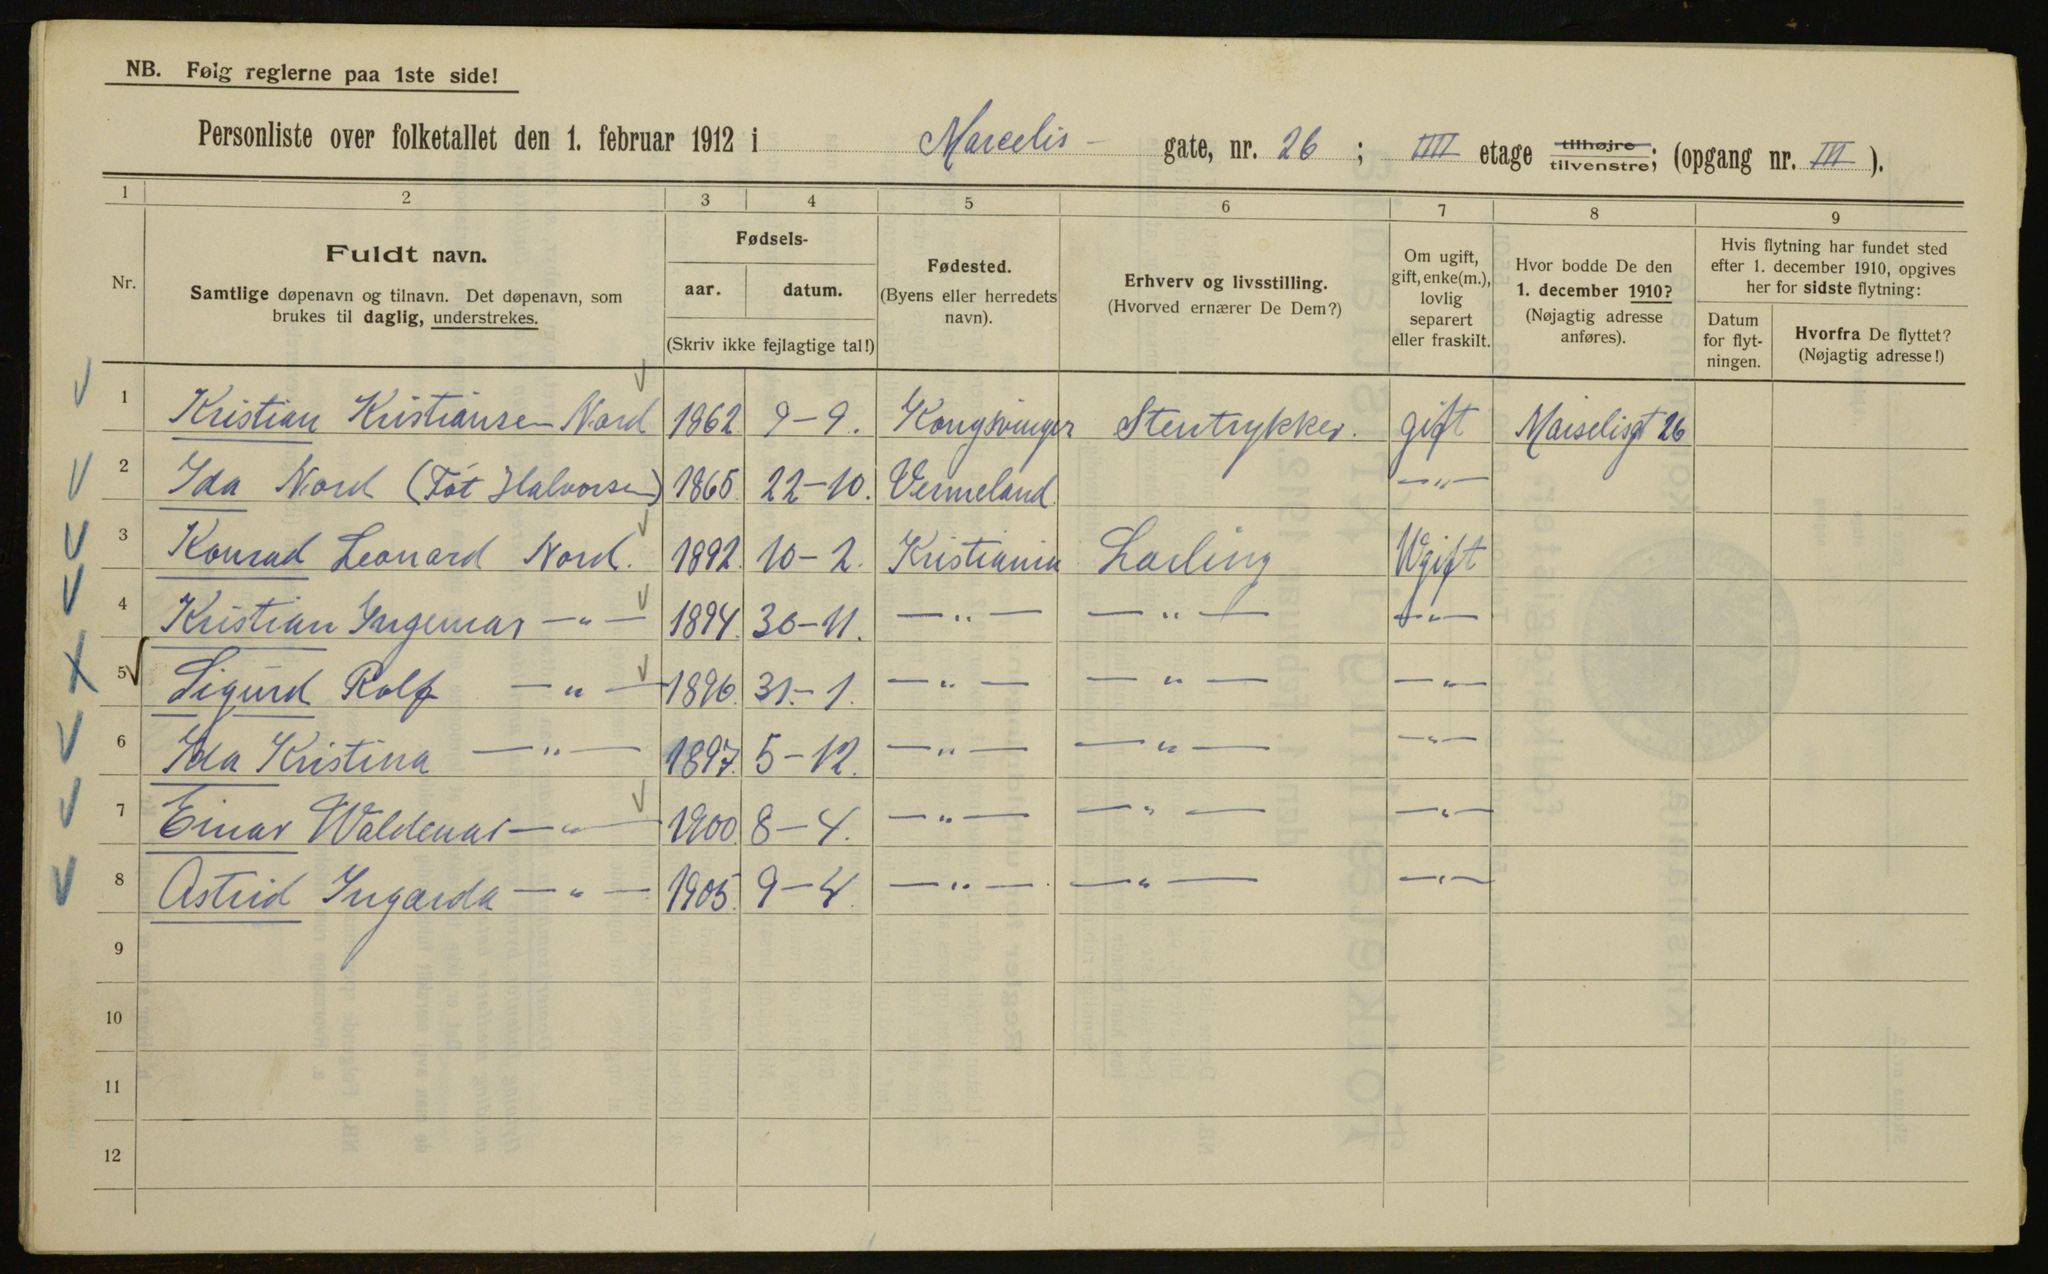 NB. Følg reglerne paa 1ste side!
Personliste over folketallet den 1. februar 1912 i Marcelis- gate, nr. 26 ; IIII etage tilhøjre tilvenstre; (opgang nr. III ).
1 2 3 4 5 6 7 8 9
Nr.
Fuldt navn.
Samtlige døpenavn og tilnavn. Det døpenavn, som
brukes til daglig, understrekes.
Fødsels-
aar. datum.
(Skriv ikke fejlagtige tal!)
Fødested.
(Byens eller herredets
navn).
Erhverv og livsstilling.
(Hvorved ernærer De Dem?)
Om ugift,
gift, enke(m.),
lovlig
separert
eller fraskilt.
Hvor bodde De den
1. december 1910?
(Nøjagtig adresse
anføres).
Hvis flytning har fundet sted
efter 1. december 1910, opgives
her for sidste flytning:
Datum
for flyt-
ningen.
Hvorfra De flyttet?
(Nøjagtig adresse!)
1 Kristian Kristiansen Nord 1862 9-9. Kongsvinger Stentrykker. gift Maiselisgt 26
2 Ida Nord (Föt Halvorsen) 1865 22-10. Vermeland —„—
3 Konrad Leonard Nord. 1892. 10-2. Kristiania Larling Ugift
4 Kristian Ingemar —„— 1894. 30-11. —„— —„— —„—
5 Sigurd Rolf —„— 1896. 31.-1. —„— —„— —„—
6 Ida Kristina —„— 1897. 5-12. —„— —„— —„—
7 Einar Waldemar —„— 1900. 8-4. —„— —„— —„—
8 Astrid Ingarda —„— 1905. 9-4. —„— —„— —„—
9
10
11
12